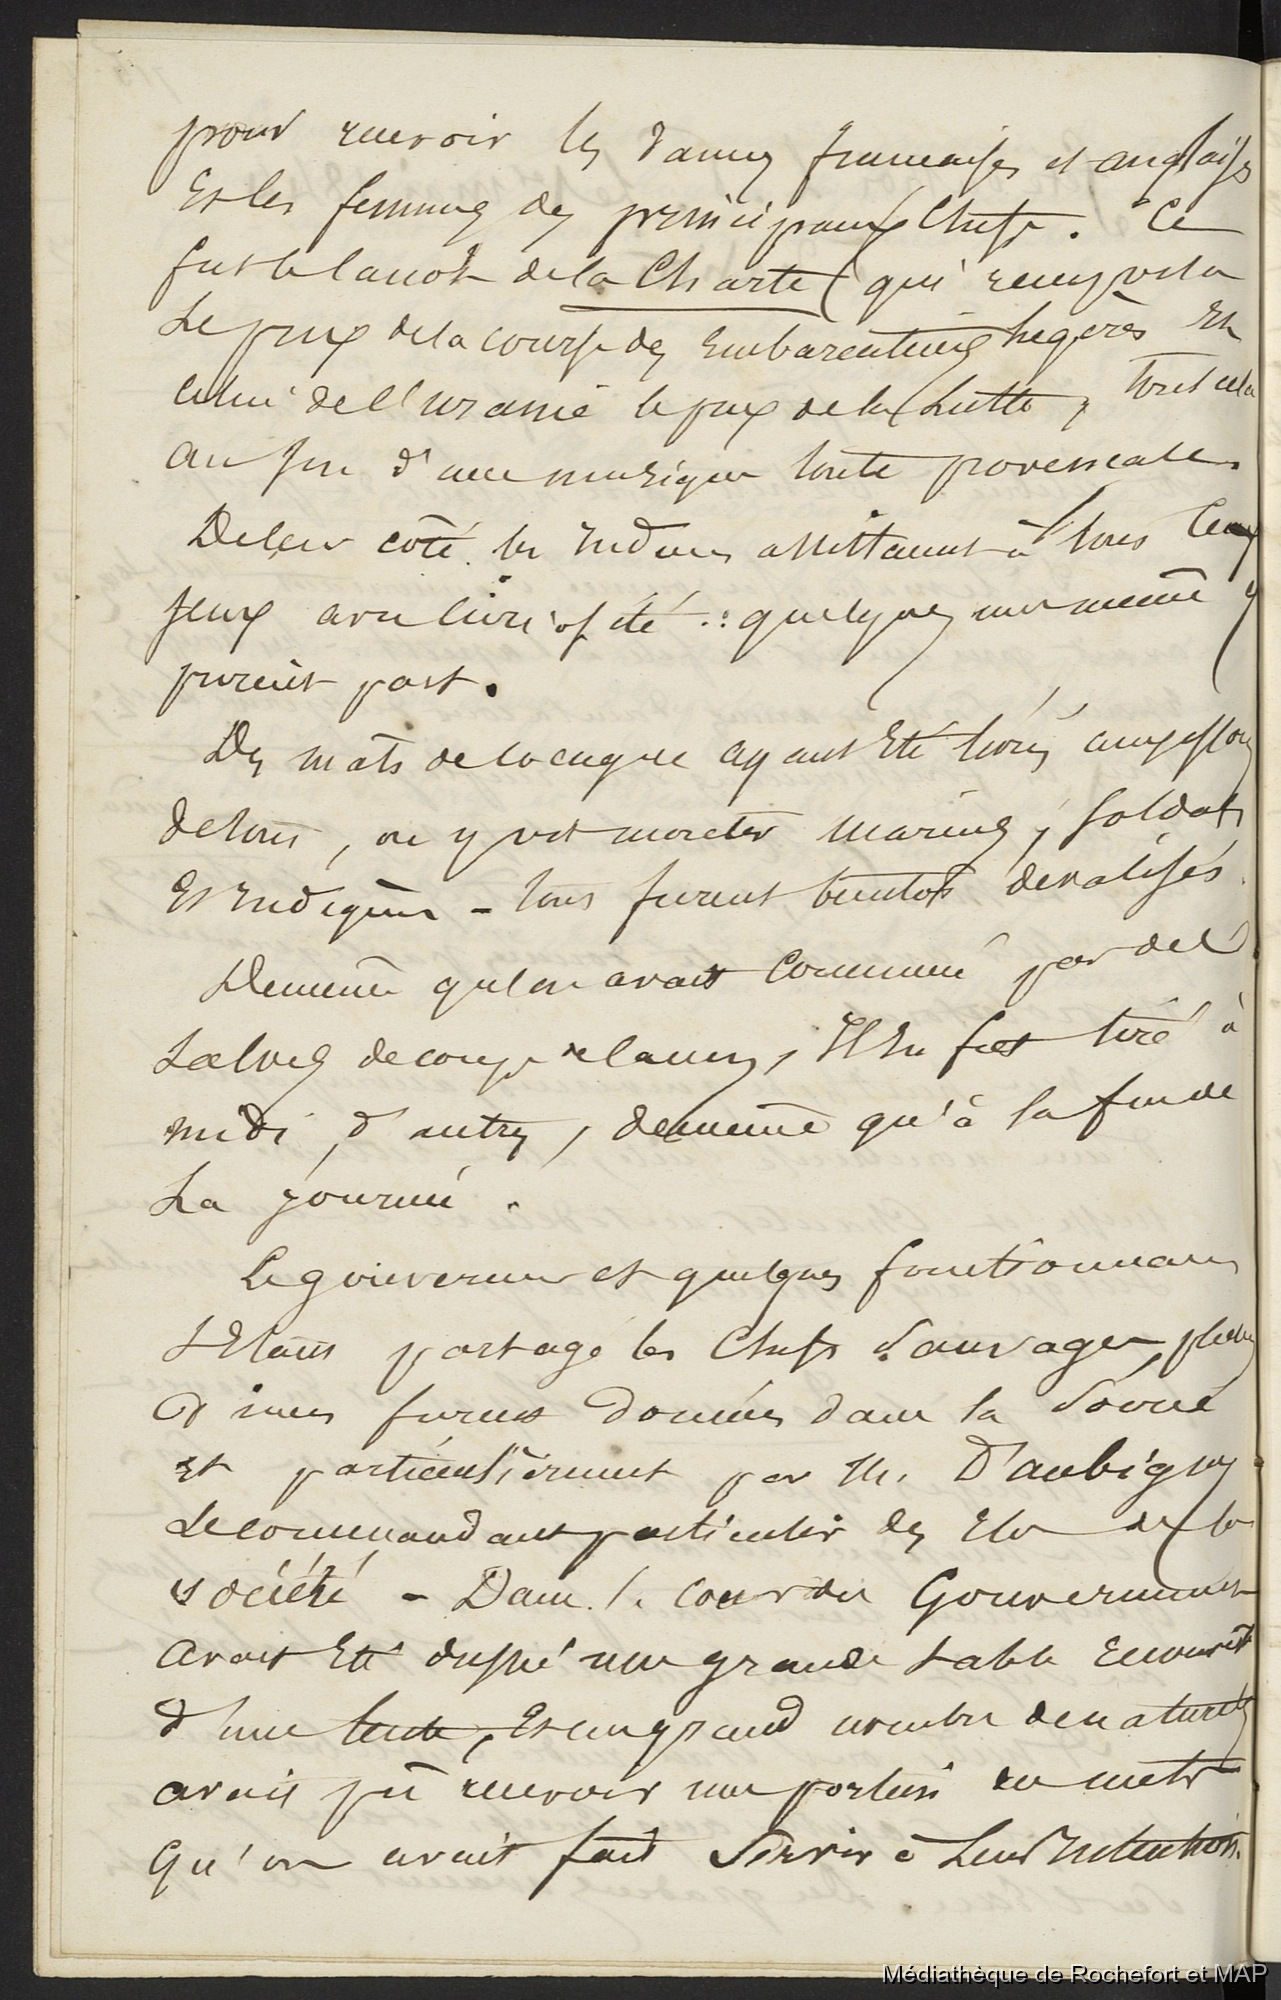 pour recevoir les dames françaises et anglaises
Et les femmes des principaux Chefs. Ce
fut le canot de la Charte qui remporta
Le prix de la course des Embarcations légères Et
celui de l'uranie le prix de la Lutte, Tout cela
au son d'une musique toute provencale.
De leur côté les Indiens assistaient à tous Ces
jeux avec curiosité : quelques uns même y
prirent part.
Des mats de cocagne ayant Eté livrés aux efforts
de tous, on y vit monter marins, soldats
Et Indigènes - tous furent bientôt dévalisés.
De même qu'on avait commencé par des
Salves de coups de canon, Il En fut tiré à
midi d'autres, de même qu'à la fin de
La journée.
Le gouverneur et quelques fonctionnaires
S'Etant partagé les Chefs Sauvages, plusieurs
Dîners furent donnés dans la Soirée
et particulièrement par M. D'aubigny
Le commandant particulier des Iles de la
société - Dans la cour du Gouvernement
avait Eté dressé une grande table Ecouverte
d'une tente, Et un grand nombre de naturels
avait pû recevoir une portion en mets
Qu'on avait fait Servir à Leur Intention.
Médiathèque de Rochefort et MAP